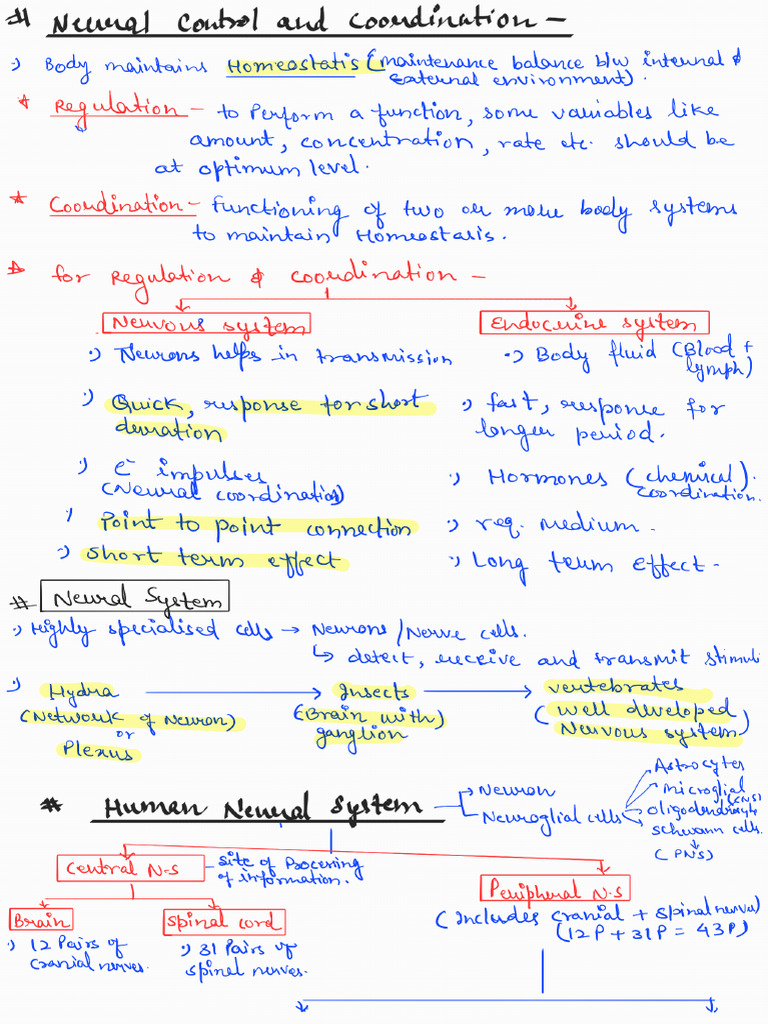 # Neural Control and Coordination -
Body maintains Homeostatis (maintenance balance b/w internal &
external environment).
* Regulation - to Perform a function, some variables like
amount, concentration, rate etc. should be
at optimum level.
* Coordination - functioning of two or more body systems
to maintain Homeostasis.
for Regulation & coordination -
Nervous system
Endocrine system
Neurons helps in transmission
Body fluid (Blood + lymph)
Quick, response for short
duration
fast, response for
longer period.
e- impulses
(Neural coordination)
Hormones (chemical)
coordination.
Point to point connection
req. medium.
short term effect
Long term effect.
# Neural System
Highly specialised cells → Neurons/Nerve cells.
↳ detect, receive and transmit stimuli
Hydra → Insects → vertebrates
(Network of Neuron)
or
Plexus
(Brain with)
ganglion
(well developed
Nervous system)
# Human Neural System
Neuron
Neuroglial cells
Astrocytes
microglial
(CNS)
oligodendrocyte
schwann cells.
(PNS)
Central N.S
- site of Processing
of information.
Peripheral N.S
(Includes cranial + spinal nerves)
(12P + 31P = 43P)
Brain
Spinal cord
12 Pairs of
cranial nerves.
31 Pairs of
spinal nerves.